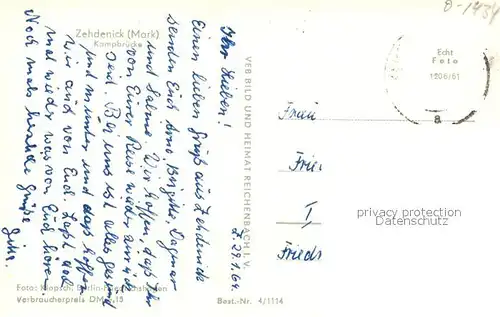 Zehdenick (Mark)
Kampbrücke
Ihr Lieben!
Einen lieben Gruß aus Zehdenick
senden Euch Arno, Birgitt, Dagmar
und Sabine. Wir hoffen, daß Ihr
von Eurer Reise wieder zurück
seid. Bei uns ist alles gesund
und munter und das hoffen
wir auch von Euch. Laßt doch
mal wieder was von Euch hören.
Noch mals herzliche Grüße
Foto: Klopsch, Berlin-Friedrichshagen
Verbraucherpreis DM -,15
VEB BILD UND HEIMAT REICHENBACH I. V.
Best.-Nr. 4/1114
29.1.64
Echt
Foto
a
Frau
I
privacy protection
Datenschutz